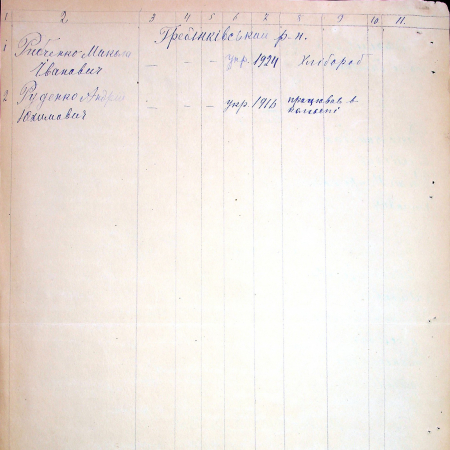 1 2 3 4 5 6 7 8 9 10 11.
Гребінківський р-н.
1 Рябченко Микола — — — укр. 1924 Хлібороб
Іванович
2 Руденко Андрій — — — укр. 1916 працював в
Юхимович колгоспі